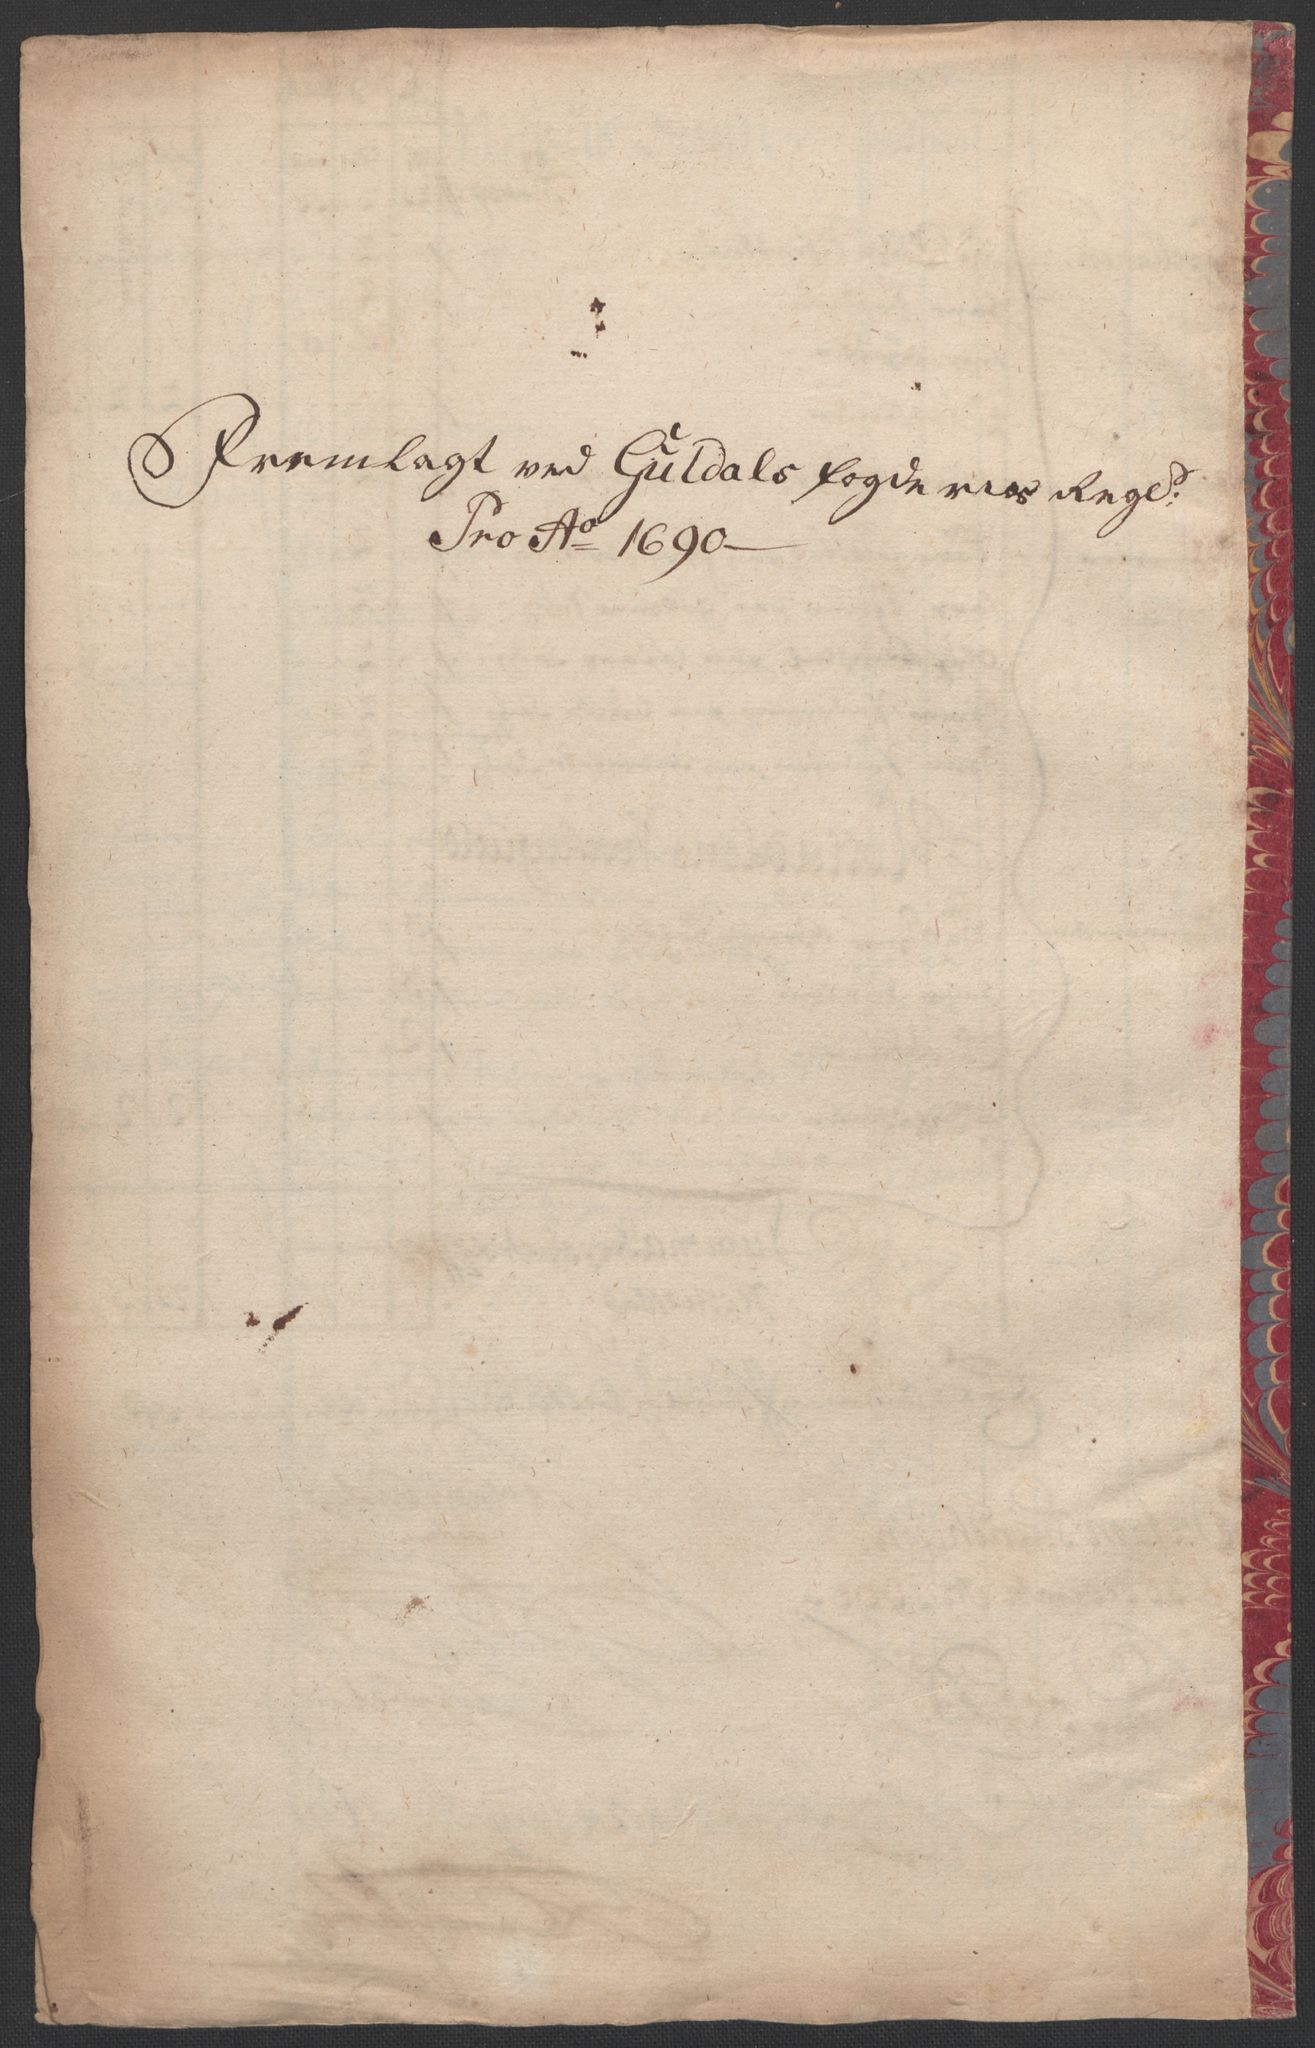 Fremlagt ved Guldals fogderies Regs:
Pro Ao 1690